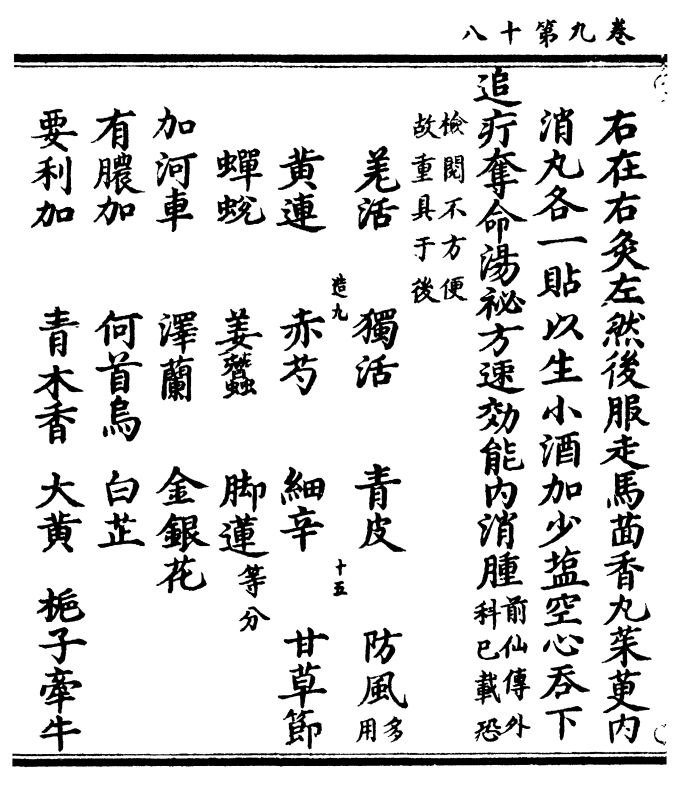 卷九第十八
右在右灸左然後服走馬茴香丸茱萸内
消丸各一貼以生小酒加少塩空心吞下
追疔奪命湯祕方速効能内消腫前仙傳外
科已載恐
檢閱不方便
故重具于後
羌活 獨活 青皮 防風多用
造九 十五
黄連 赤芍 細辛 甘草節
蟬蛻 姜蠶 脚蓮等分
加河車 澤蘭 金銀花
有膿加 何首烏 白芷
要利加 青木香 大黄 梔子牽牛